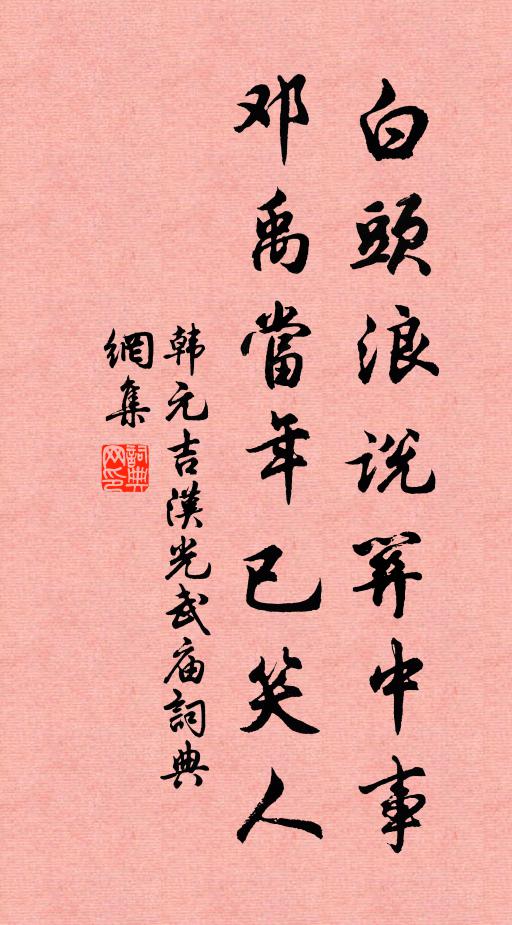 白頭浪説關中事
邓禹當年已笑人
韩元吉漢光武庙詞典
網集
詞典
网印